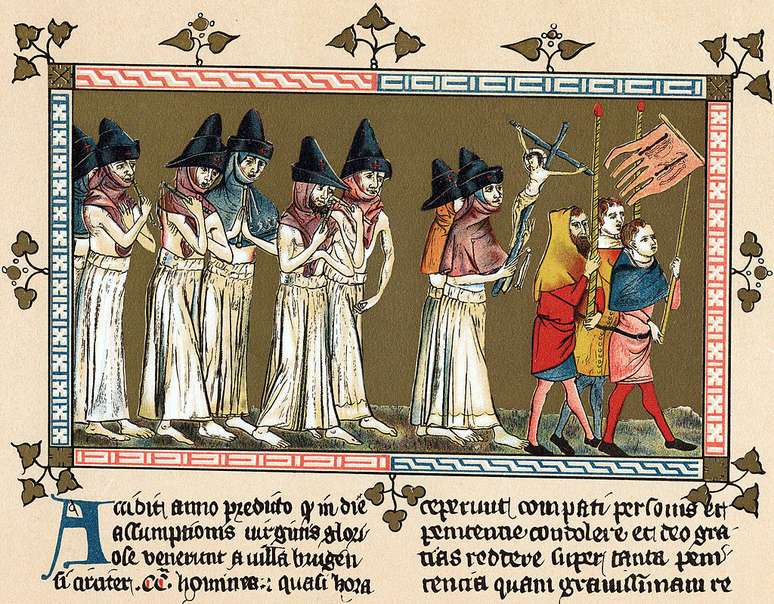 Accidit anno predicto q in die
assumptionis uirginis glori
ose venerunt a uilla brugen
si circiter .CC. homines: quasi hora
ceperunt compati personis et
penitencie condolere et deo gra-
tias reddere super tanta peni-
tencia quam grauissimam re